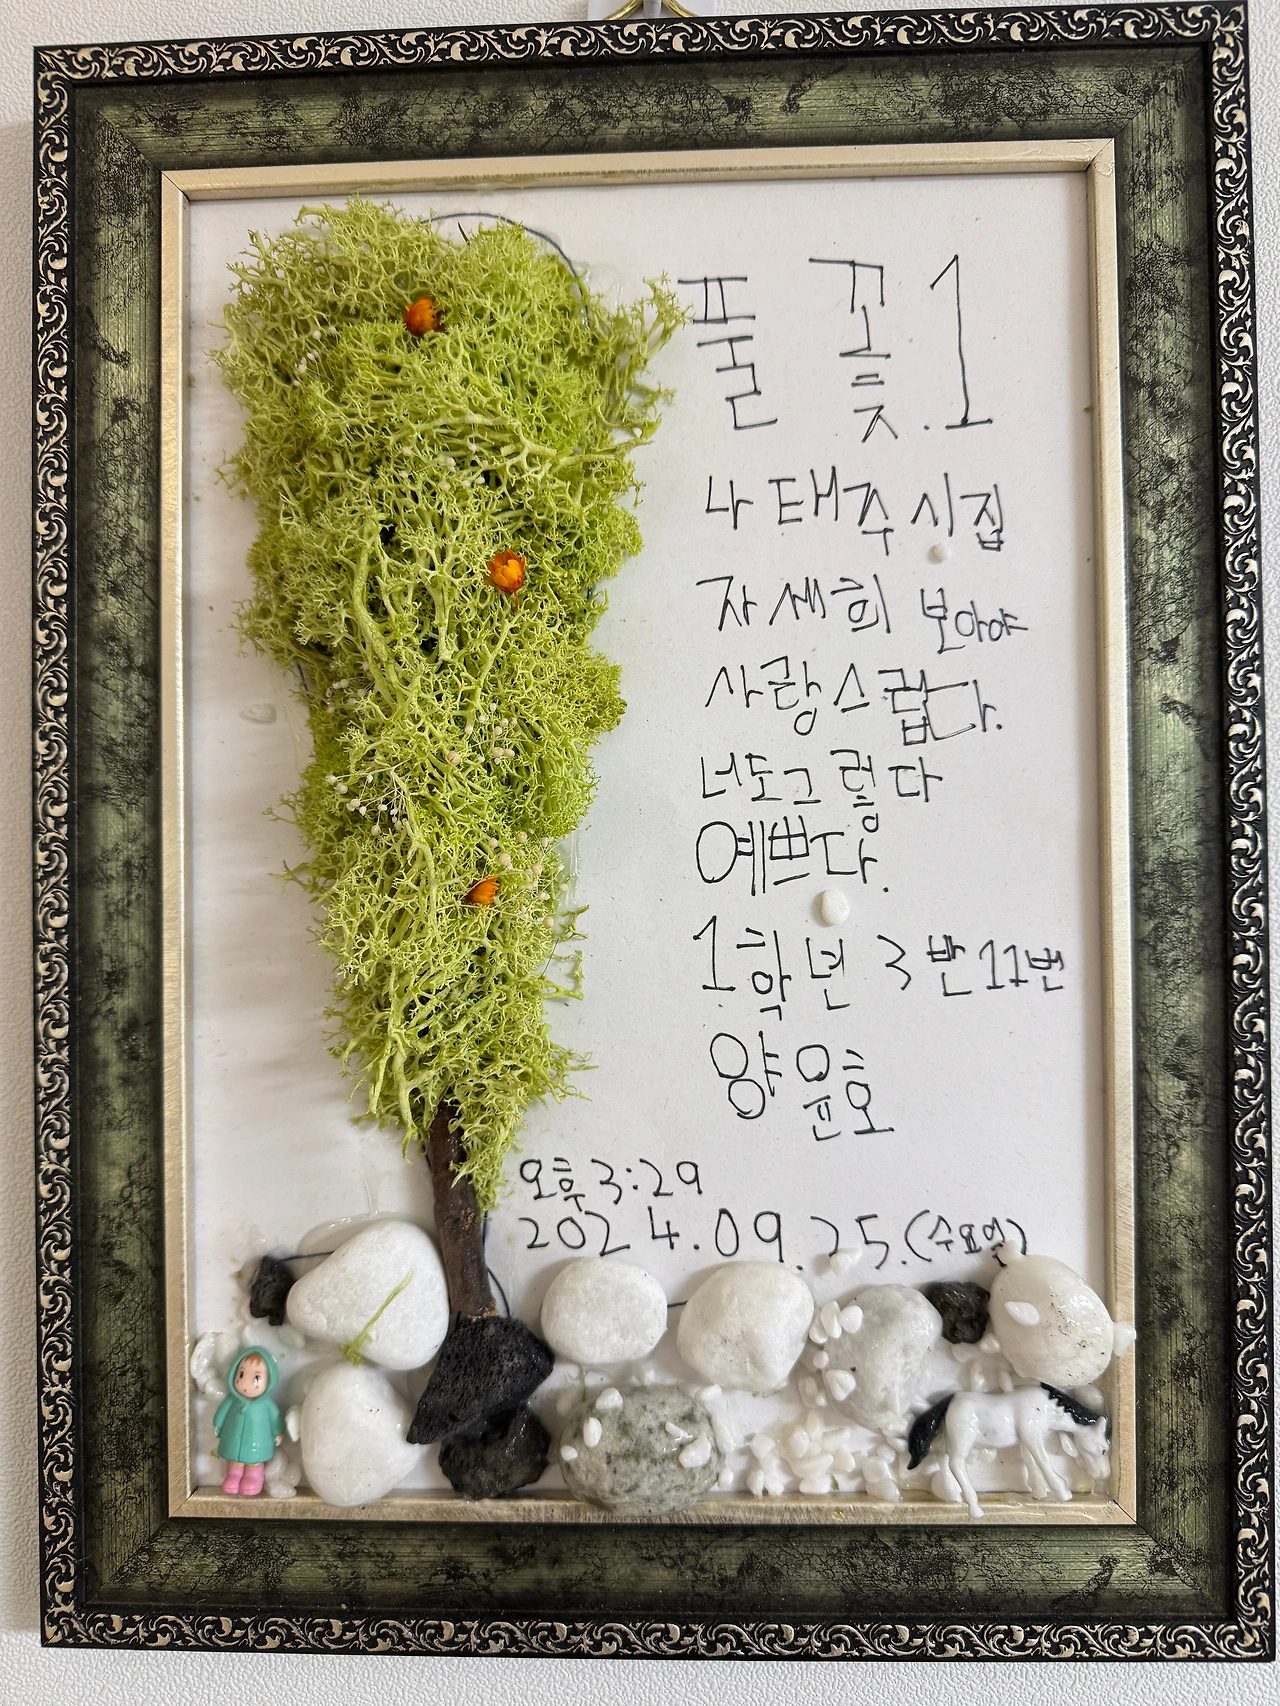 풀 꽃.1
나태주 시집
자세희 보아야
사랑스럽다.
너도그렇다
예쁘다.
1학년 3반11번
양윤호
오후3:29
2024.09.25.(수요일)